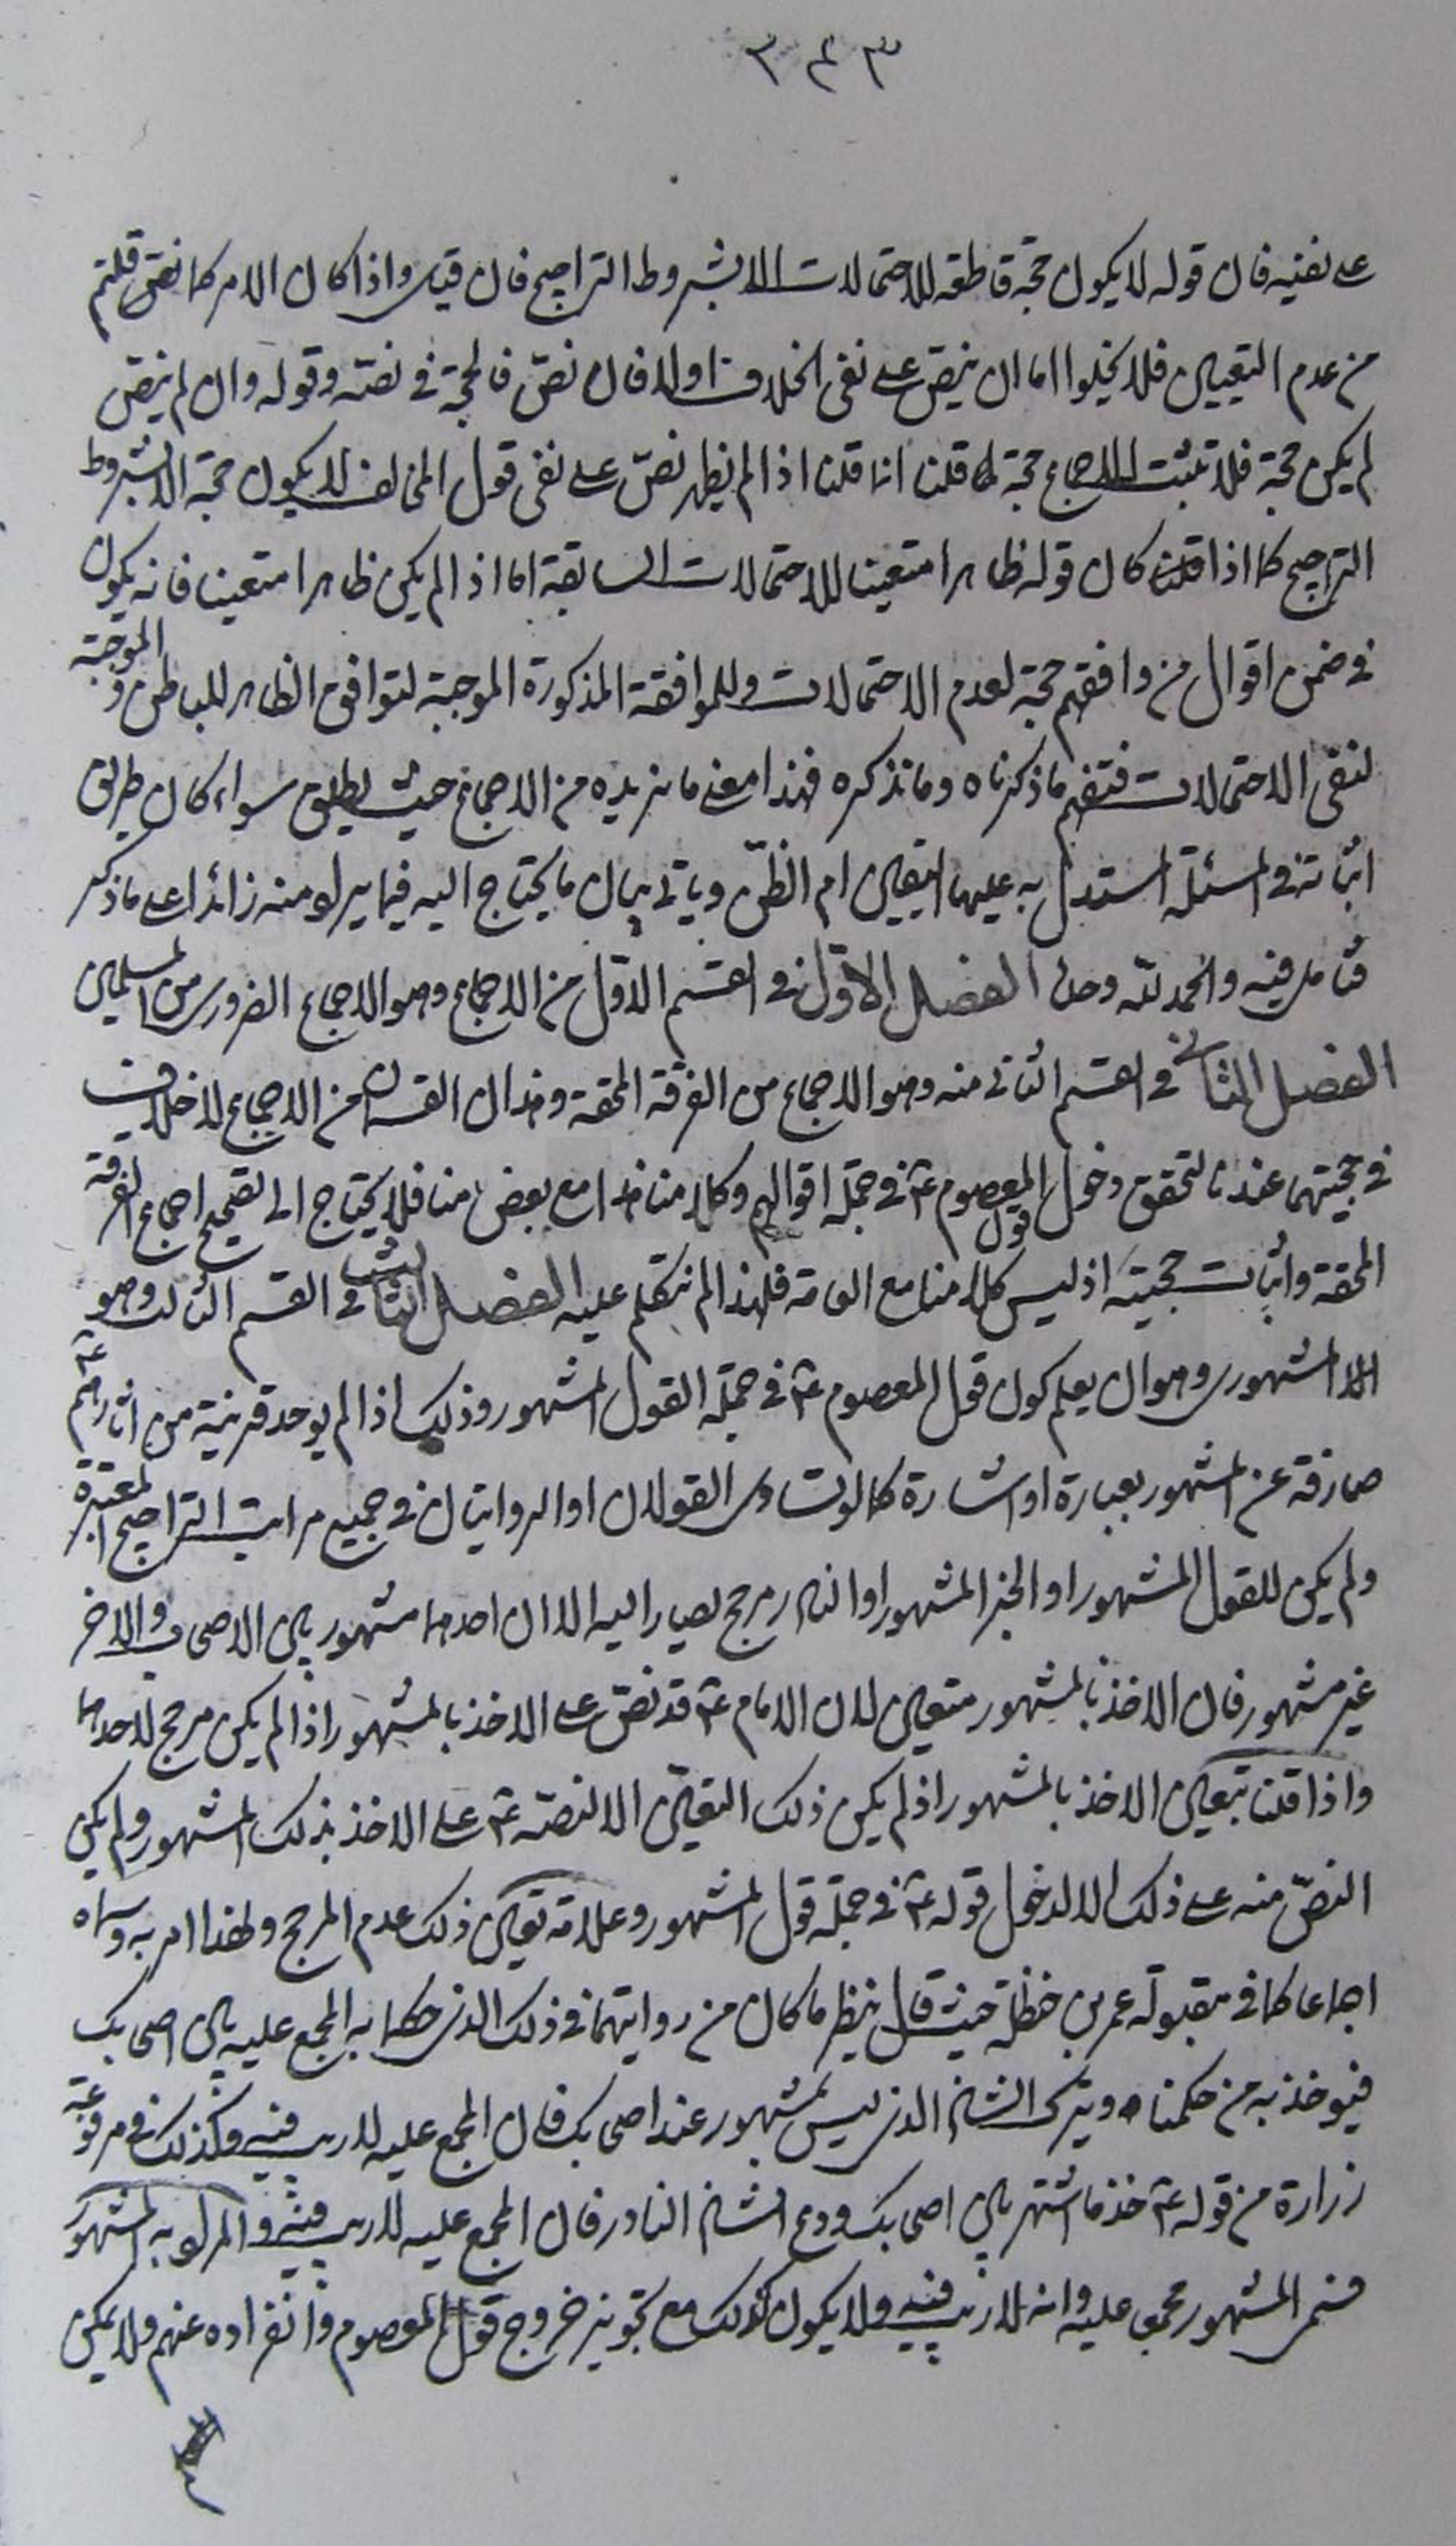 ٣٤٣
على نفيه فان قوله لا يكون حجة قاطعة للاحتمالات الا بشروط التراجيح فان قيل واذا كان الامر كما نقص قلتم
من عدم التعيين فلا يخلوا اما ان ينص على نفى الخلاف اولا فان نص فالحجة فى نصه وقوله وان لم ينص
لم يكن حجة فلا تثبت للاجماع حجة قلنا انا قلنا اذا لم يظهر نص على نفى قول المخالف لا يكون حجة الا بشروط
التراجيح كما اذا قلنا كان قوله ظاهرا متعينا للاحتمالات السابقة اما اذا لم يكن ظاهرا متعينا فانه يكون
فى ضمن اقوال من وافقهم حجة لعدم الاحتمالات وللموافقة المذكورة الموجبة لتوافق الظاهر للباطن و الموجبة
لنفى الاحتمالات فتفهم ما ذكرناه وما نذكره فهذا معنى ما نريده من الاجماع حيث يطلق سواء كان طريق
اثباته فى المسئلة المستدل به عليها اليقين ام الظن وياتى بيان ما يحتاج اليه فيما يراد منه زائدا على ما ذكر
فتامل فيه والحمد لله وحده الفصل الاول فى القسم الاول من الاجماع وهو الاجماع الضرورى من المسلمين
الفصل الثانى فى القسم الثانى منه وهو الاجماع من الفرقة المحقة وهذان القسمان من الاجماع لا خلاف
فى حجيتهما عندنا لتحقق دخول قول المعصوم ع فى جملة اقوالهم وكلامنا هذا مع بعض منا فلا يحتاج الى تصحيح اجماع الفرقة
المحقة واثبات حجيته اذ ليس كلامنا مع العامة فلهذا لم نتكلم عليه الفصل الثالث فى القسم الثالث وهو
المشهورى وهو ان يعلم كون قول المعصوم ع فى جملة القول المشهور وذلك اذا لم يوجد قرينة من اثارهم ع
صارفة عن المشهور بعبارة او اشارة كما لو تساوى القولان او الروايتان فى جميع مراتب التراجيح المعتبرة
ولم يكن للقول المشهور او الخبر المشهور او النادر مرجح يصار اليه الا ان احدهما مشهور بين الاصحاب والاخر
غير مشهور فان الاخذ بالمشهور متعين لان الامام ع قد نص على الاخذ بالمشهور اذا لم يكن مرجح لاحدهما
واذا قلنا بتعين الاخذ بالمشهور اذ لم يكن ذلك التعين الا لنصه ع على الاخذ بذلك المشهور ولم يكن
النص منه على ذلك الا لدخول قوله ع فى جملة قول المشهور وعلامة تعين ذلك عدم المرجح ولهذا امر به وسماه
اجماعا كما فى مقبولة عمر بن حنظلة حيث قال ينظر ما كان من روايتهما فى ذلك الذى حكما به المجمع عليه بين اصحابك
فيوخذ به من حكمنا ويترك الشاذ الذى ليس بمشهور عند اصحابك فان المجمع عليه لا ريب فيه وكذلك فى مرفوعة
زرارة من قوله ع خذ ما اشتهر بين اصحابك ودع الشاذ النادر فان المجمع عليه لا ريب فيه والمراد به المشهور
فسمى المشهور مجمع عليه وانه لا ريب فيه ولا يكون كذلك مع تجويز خروج قول المعصوم وانفراده عنهم ولا يمكن